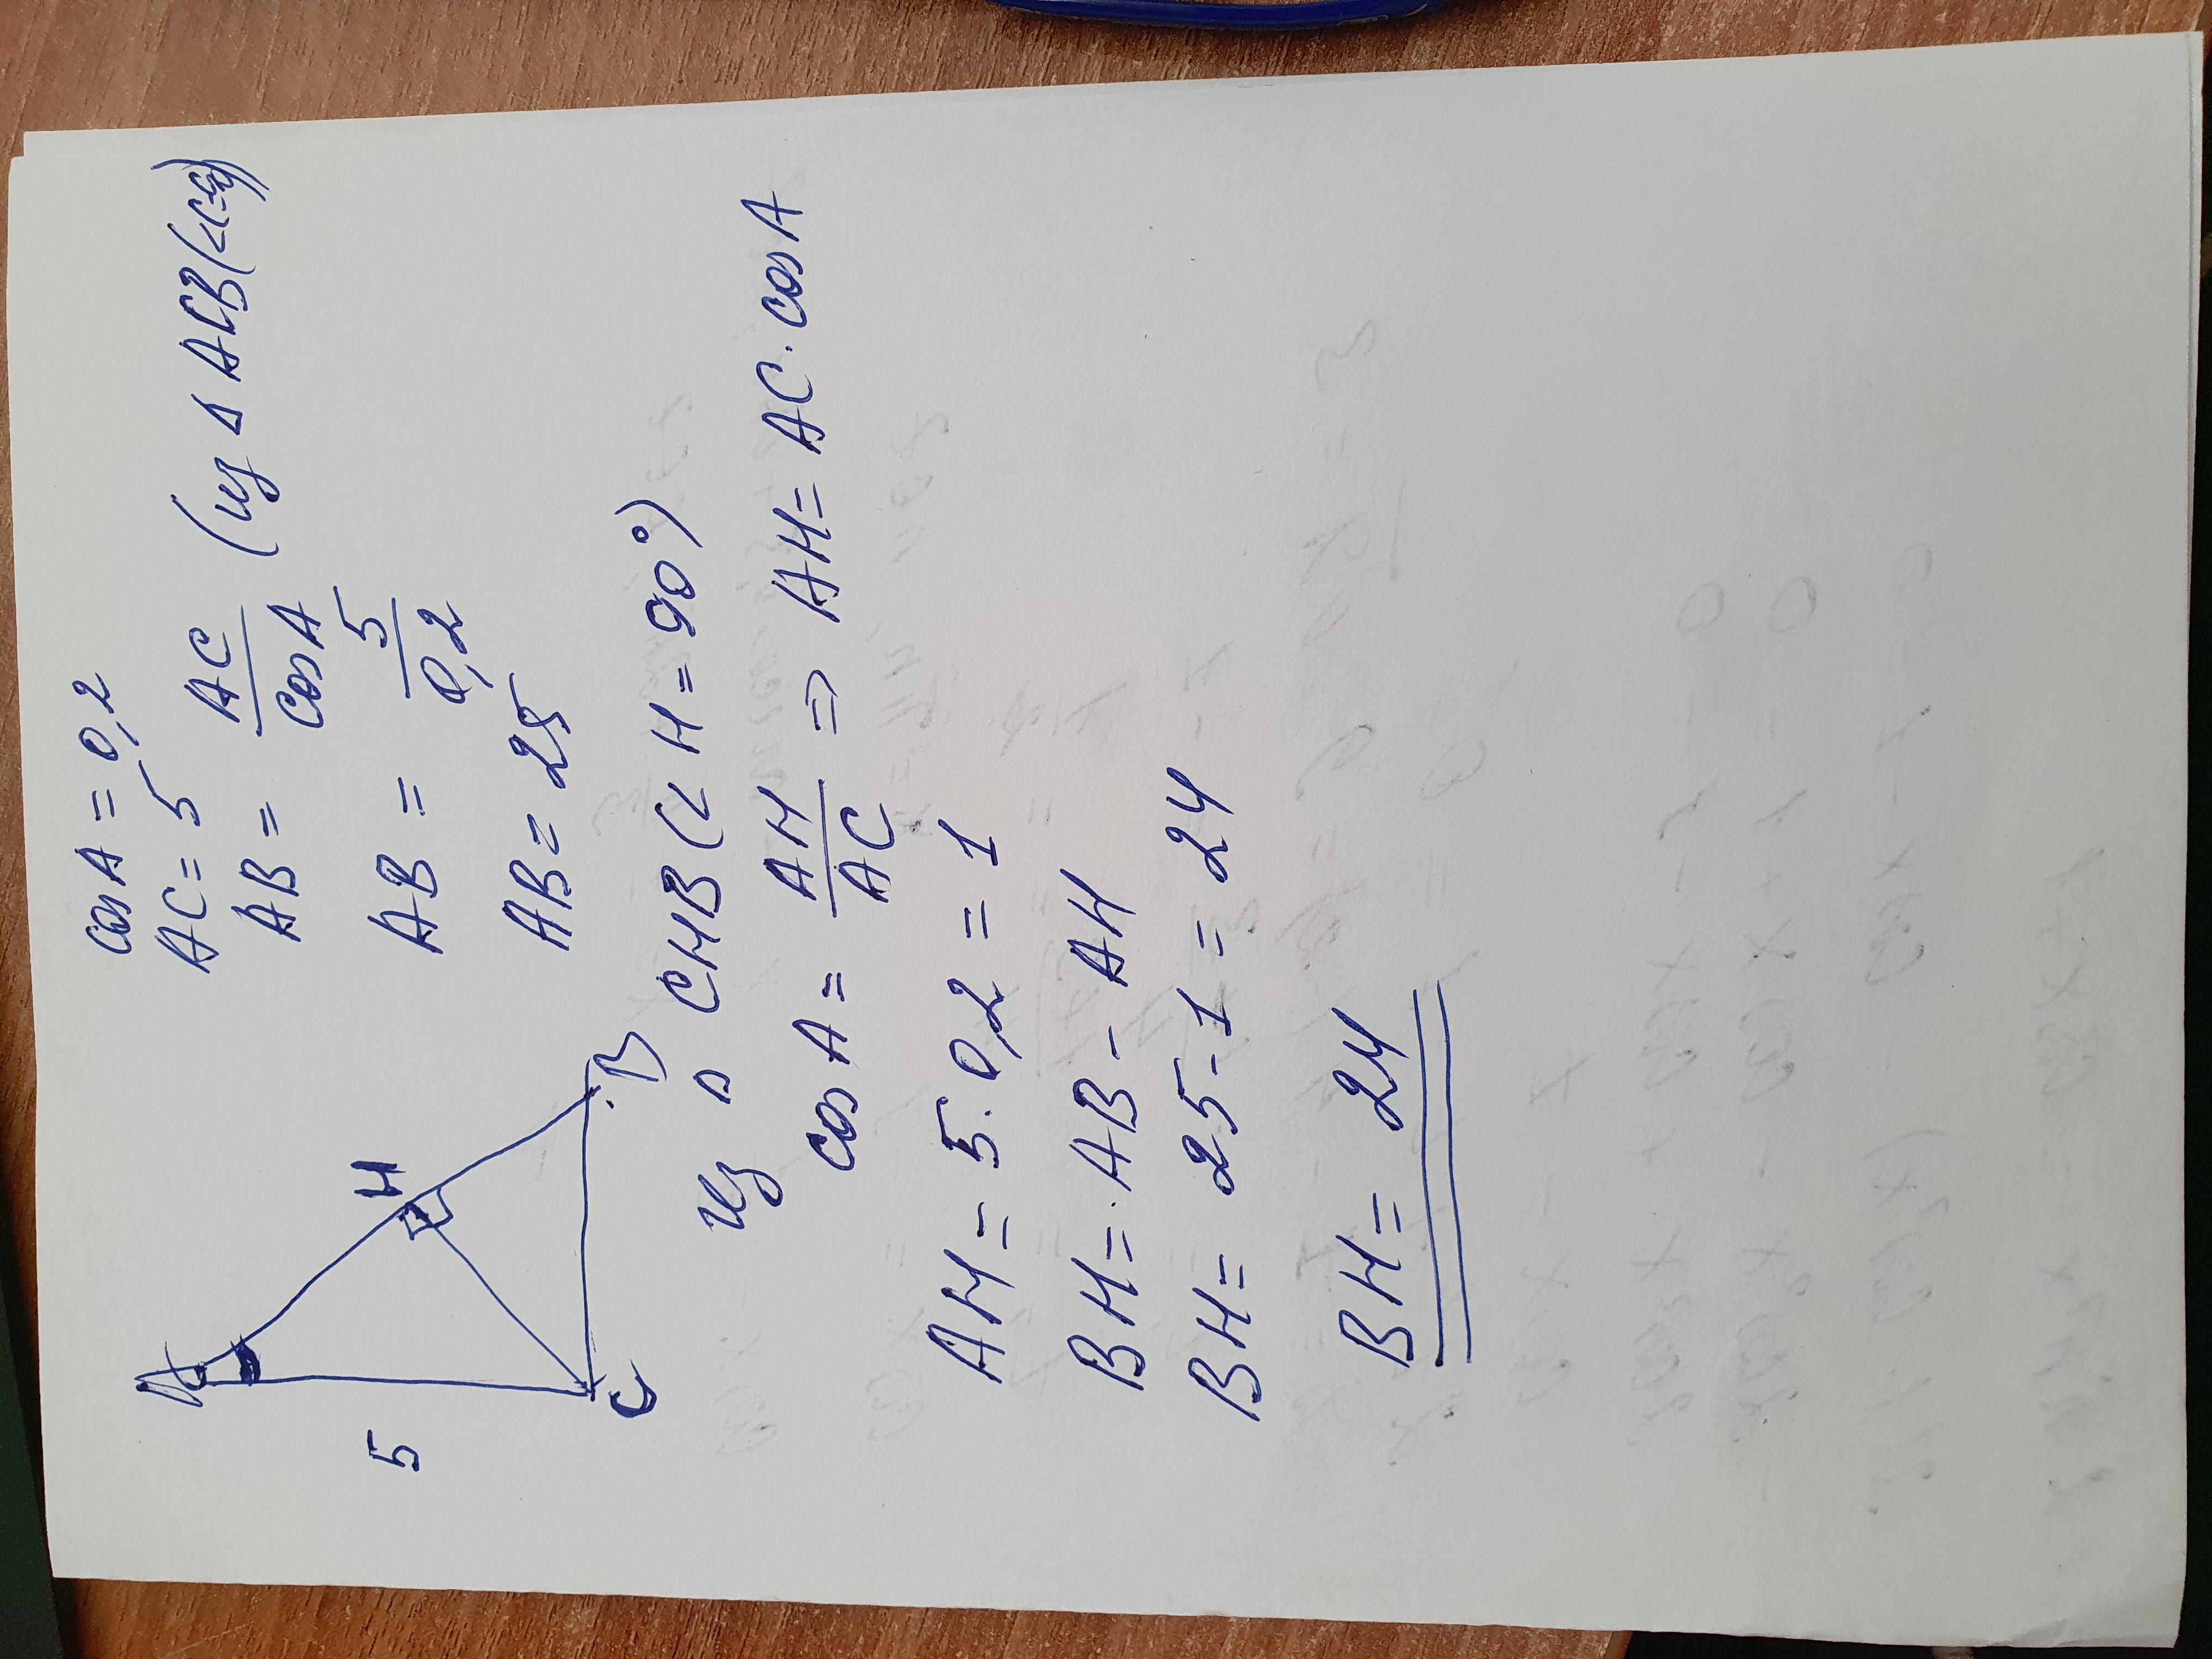 A
H
5
C
B
cos A = 0,2
AC = 5
AB = AC/cos A (из Δ ACB (∠C=90°)
AB = 5/0,2
AB = 25
Из Δ CHB (∠ H = 90°)
cos A = AH/AC ⇒ AH = AC · cos A
AH = 5 · 0,2 = 1
BH = AB - AH
BH = 25 - 1 = 24
BH = 24